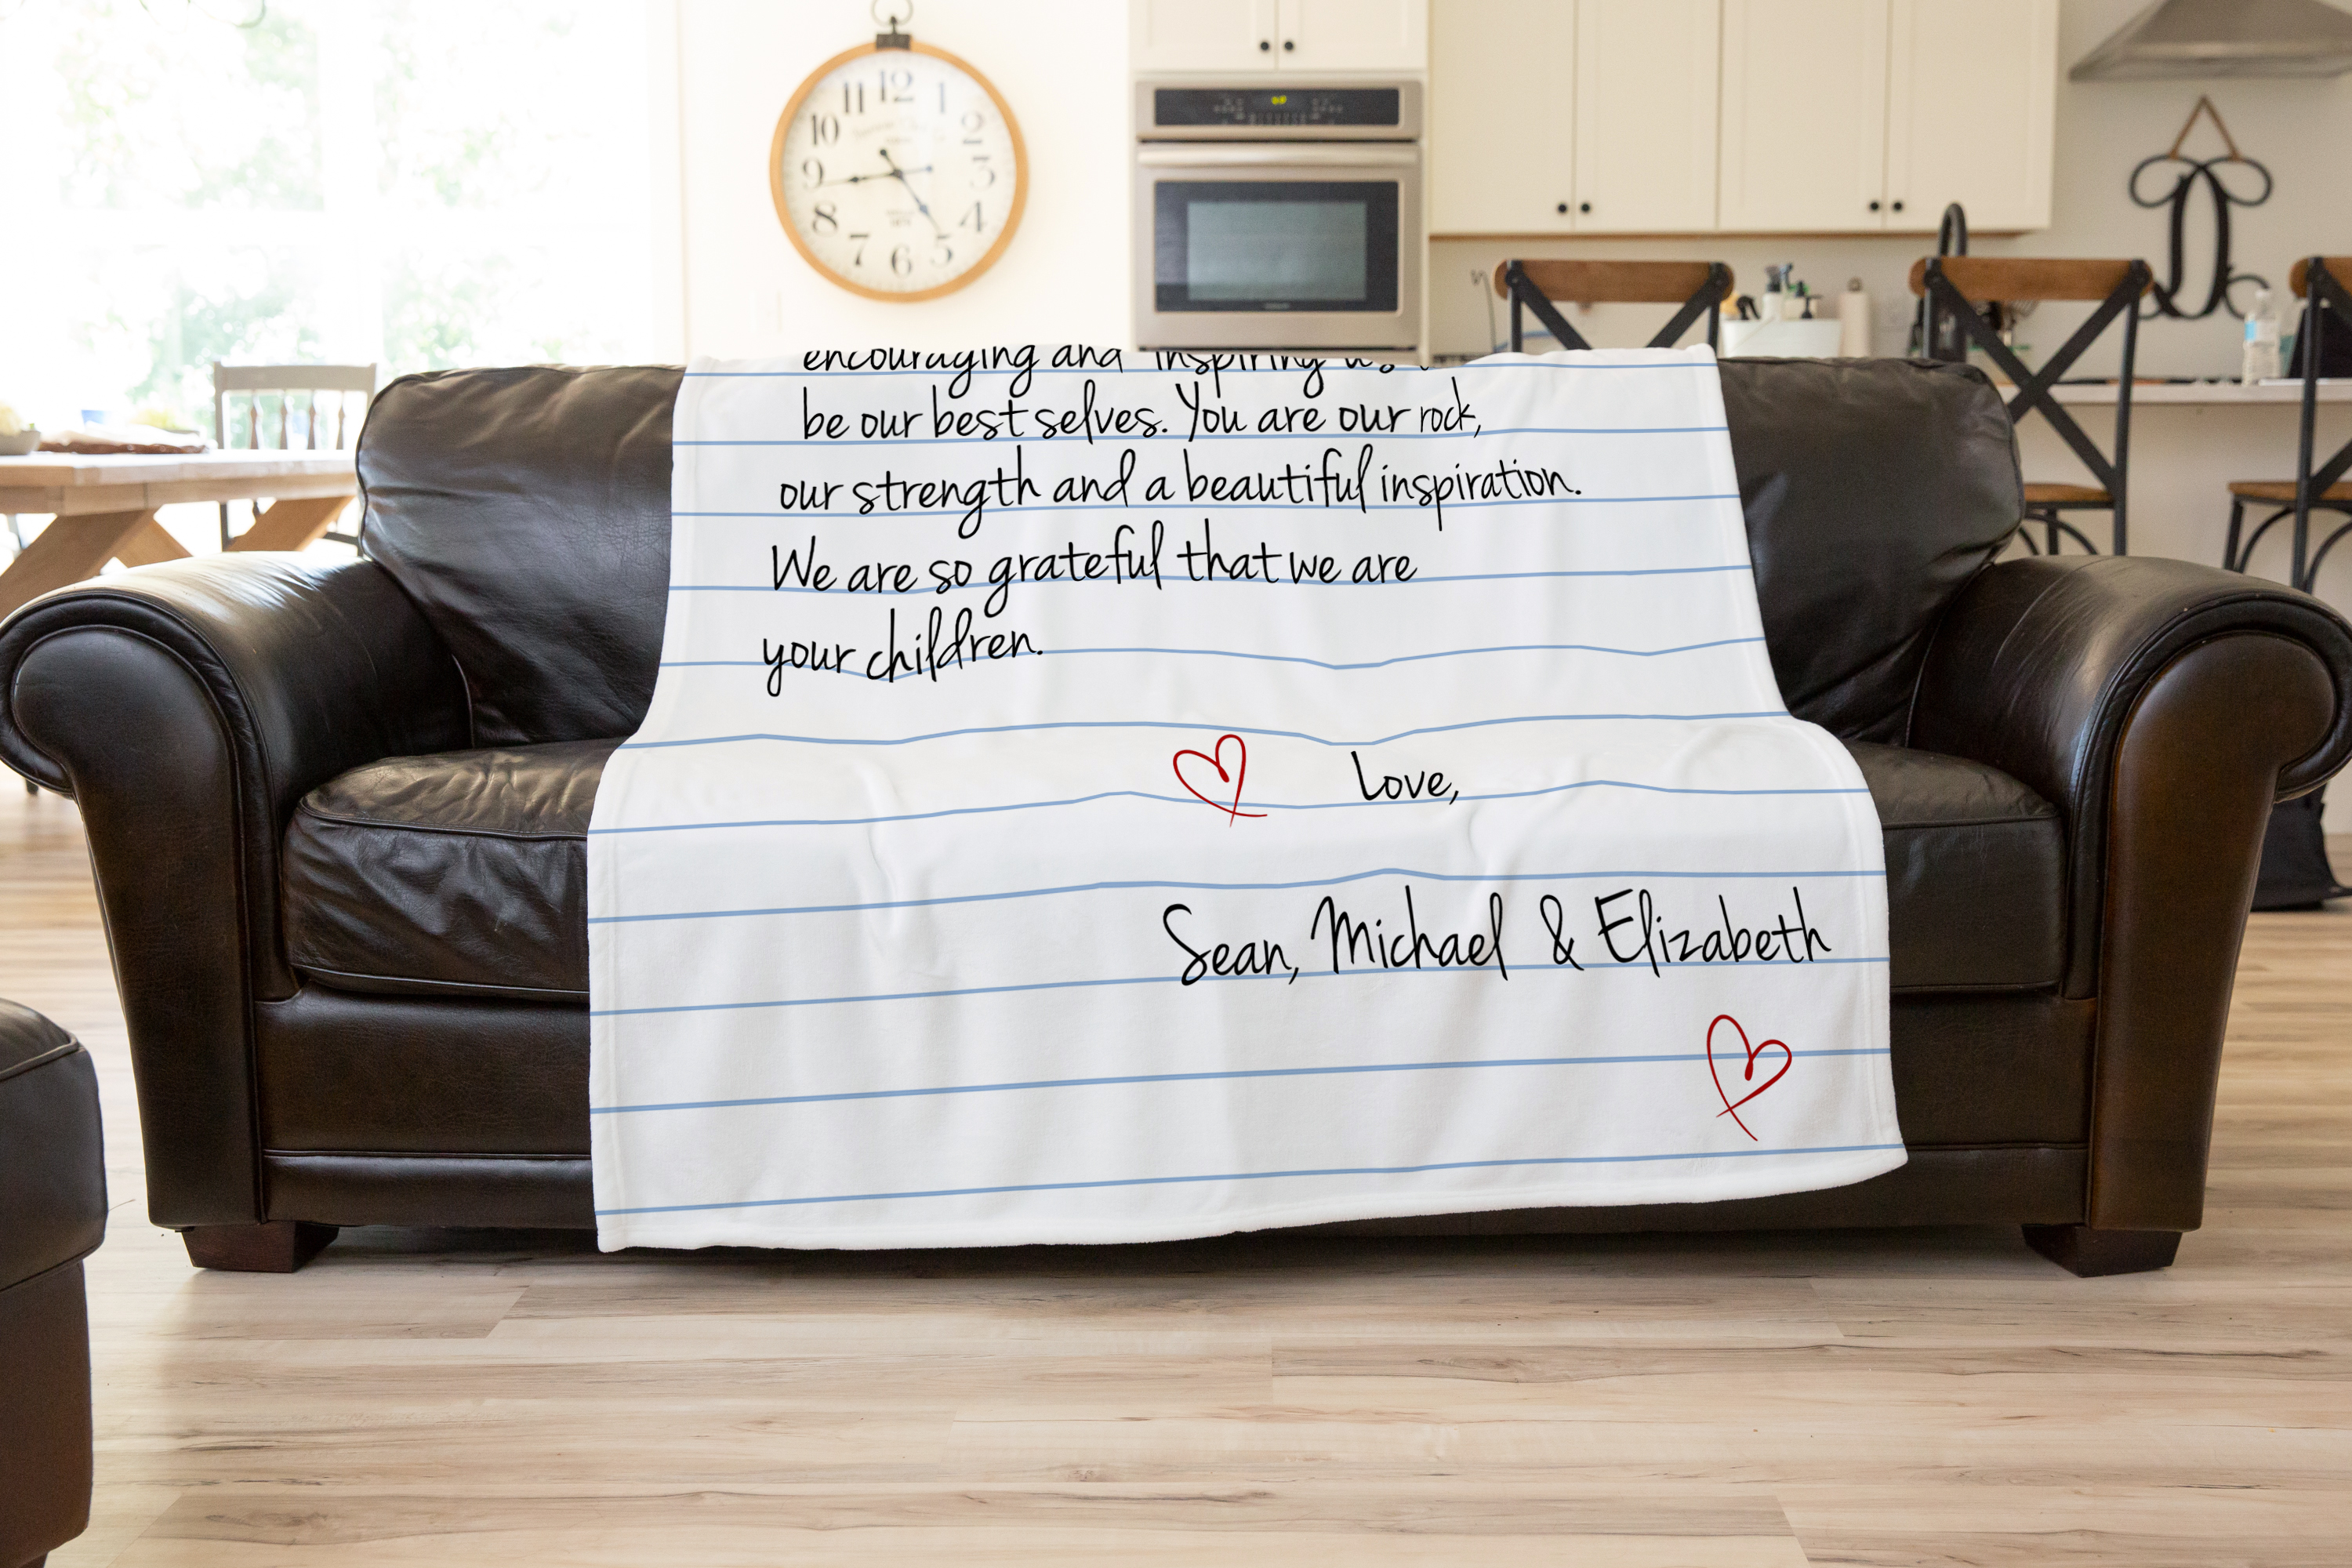 12
11 1
10 2
9 3
8 4
7 6 5
encouraging and inspiring us
be our best selves. You are our rock,
our strength and a beautiful inspiration.
We are so grateful that we are
your children.
Love,
Sean, Michael & Elizabeth